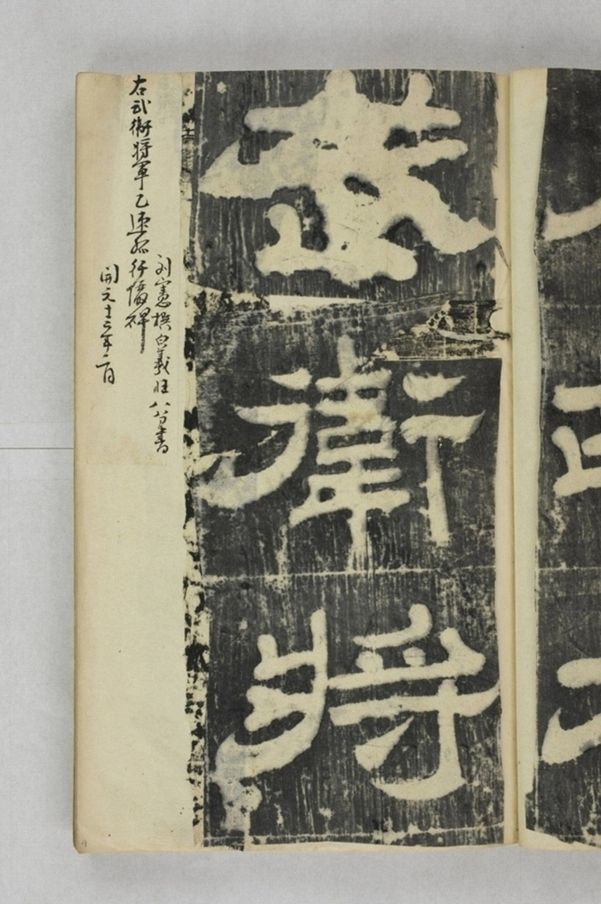 武
衛
將
右武衛將軍乙速孤行儼碑
劉憲撰白羲晊八分書
開元十三年二月